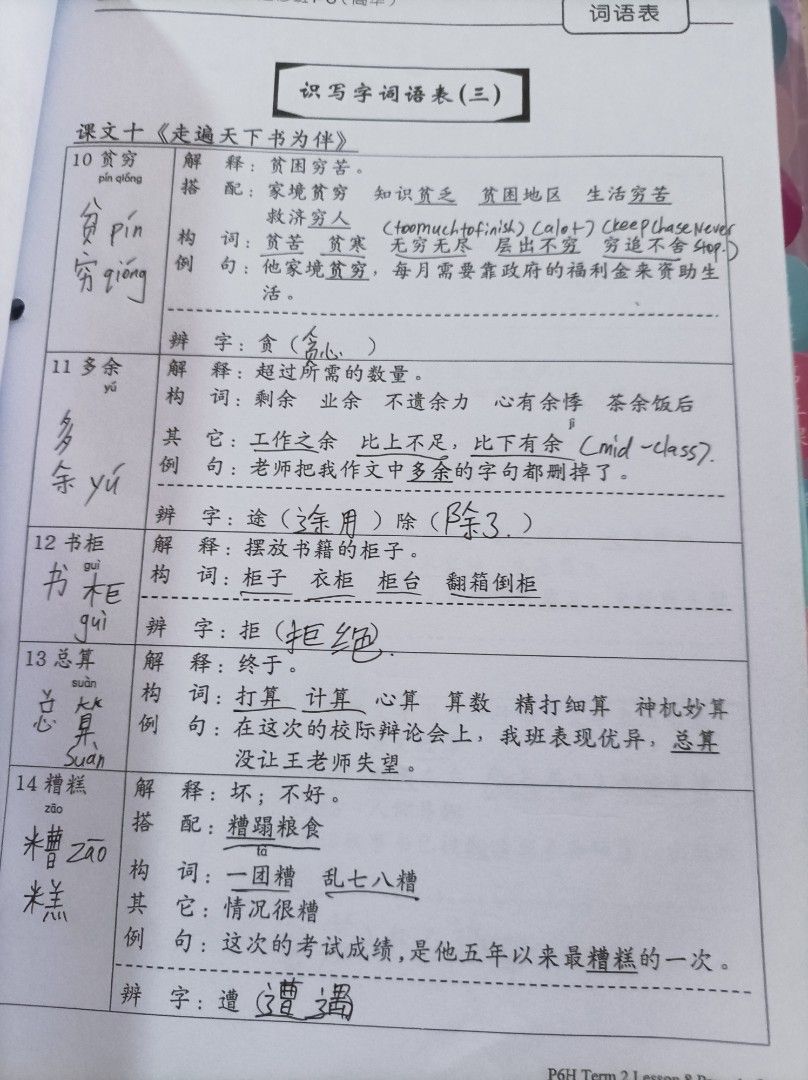 词语表
识写字词语表(三)
课文十《走遍天下书为伴》
10 贫穷
pín qióng
贫 pín
穷 qióng
解 释：贫困穷苦。
搭 配：家境贫穷 知识贫乏 贫困地区 生活穷苦
救济穷人
(too much to finish) (a lot) (keep chase never stop.)
构 词：贫苦 贫寒 无穷无尽 层出不穷 穷追不舍
例 句：他家境贫穷，每月需要靠政府的福利金来资助生
活。
辨 字：贪（贪心）
11 多余
yú
多
余 yú
解 释：超过所需的数量。
构 词：剩余 业余 不遗余力 心有余悸 茶余饭后
jì
其 它：工作之余 比上不足，比下有余 (mid-class).
例 句：老师把我作文中多余的字句都删掉了。
辨 字：途（途用）除（除了.）
12 书柜
guì
书 柜
guì
解 释：摆放书籍的柜子。
构 词：柜子 衣柜 柜台 翻箱倒柜
辨 字：拒（拒绝）.
13 总算
suàn
总 算
suàn
解 释：终于。
构 词：打算 计算 心算 算数 精打细算 神机妙算
例 句：在这次的校际辩论会上，我班表现优异，总算
没让王老师失望。
14 糟糕
zāo
糟 zāo
糕
解 释：坏；不好。
搭 配：糟蹋粮食
tà
构 词：一团糟 乱七八糟
其 它：情况很糟
例 句：这次的考试成绩，是他五年以来最糟糕的一次。
辨 字：遭（遭遇）
P6H Term 2 Lesson 8